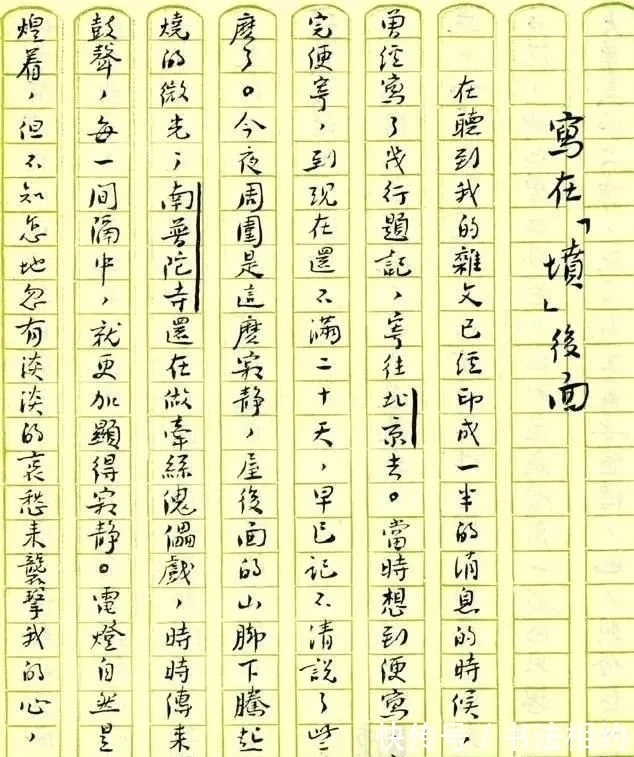 寫在「墳」後面
在聽到我的雜文已經印成一半的消息的時候,
曾經寫了幾行題記,寄往北京去。當時想到便寫
完便寄,到現在還不滿二十天,早已記不清說了些
麽了。今夜周圍是這麽寂靜,屋後面的山脚下騰起
燒的微光;南普陀寺還在做牽絲傀儡戲,時時傳来
鼓聲,每一間隔中,就更加顯得寂靜。電燈自然是
煌着,但不知怎地忽有淡淡的哀愁来襲擊我的心,
快传号 / 书法相约